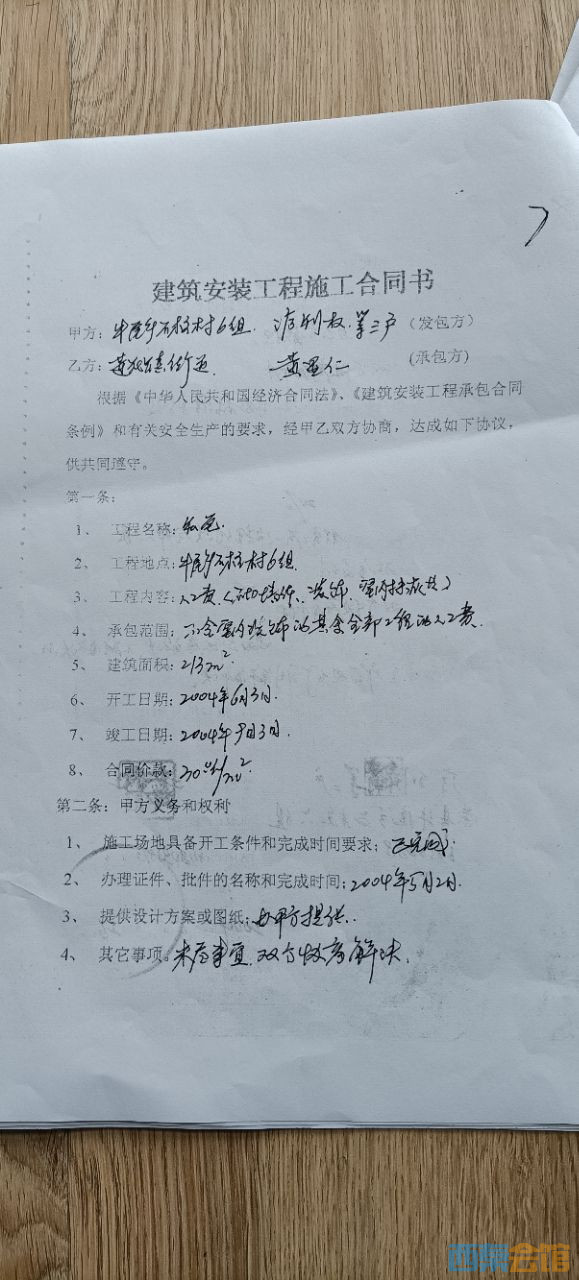 建筑安装工程施工合同书
甲方:牛 乡石柱村6组. 第三户(发包方)
乙方: 黄 仁 (承包方)
根据《中华人民共和国经济合同法》、《建筑安装工程承包合同
条例》和有关安全生产的要求,经甲乙双方协商,达成如下协议,
供共同遵守。
第一条:
1、 工程名称:
2、 工程地点:牛 乡石柱村6组.
3、 工程内容:人工费
4、 承包范围:不含室内 其余全部工程的人工费.
5、 建筑面积:213m².
6、 开工日期:2004年6月3日.
7、 竣工日期:2004年 月3日.
8、 合同价款: /m².
第二条:甲方义务和权利
1、 施工场地具备开工条件和完成时间要求:已完成.
2、 办理证件、批件的名称和完成时间:2004年5月2日.
3、 提供设计方案或图纸:由甲方提供.
4、 其它事项:未尽事宜,双方 解决.
西京会馆